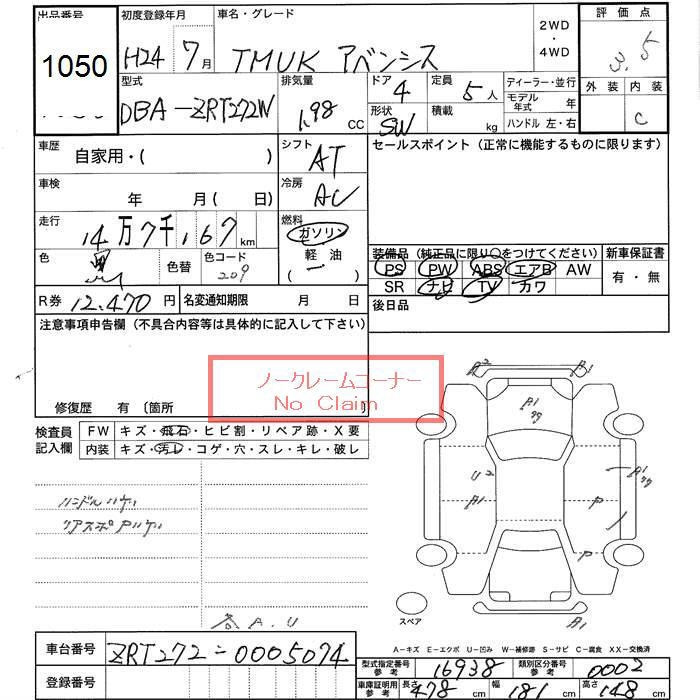 出品番号 初度登録年月 車名・グレード 2WD・4WD 評価点
1050 H24 7月 TMUK アベンシス 3.5
型式 排気量 ドア 定員 ディーラー・並行 外装 内装
DBA-ZRT272W 1.98 cc 4 5人 モデル年式 年 C
形状 積載 ハンドル 左・右
SW kg
車歴 自家用・( ) シフト AT セールスポイント(正常に機能するものに限ります)
車検 年 月( 日) 冷房 AC
走行 14万7千167km 燃料 ガソリン
軽油
色 黒 色替 色コード 209
装備品(純正品に限り○をつけてください) 新車保証書
PS PW ABS エアB AW 有・無
SR ナビ TV カワ
R券 12.470円 名変通知期限 月 日 後日品
注意事項申告欄(不具合内容等は具体的に記入して下さい)
ノークレームコーナー
No Claim
修復歴 有(箇所
検査員記入欄 FW キズ・飛石・ヒビ割・リペア跡・X要
内装 キズ・汚レ・コゲ・穴・スレ・キレ・破レ
ハンドルハゲ
各A.U
A2 A1
A1
U2 A1
A1 P
P
A1
スペア
A-キズ E-エクボ U-凹み W-補修跡 S-サビ C-腐食 XX-交換済
車台番号 ZRT272-0005074
登録番号
型式指定番号 参考 16938 類別区分番号 参考 0002
車庫証明用 参考 長さ 478cm 幅 181cm 高さ 148cm